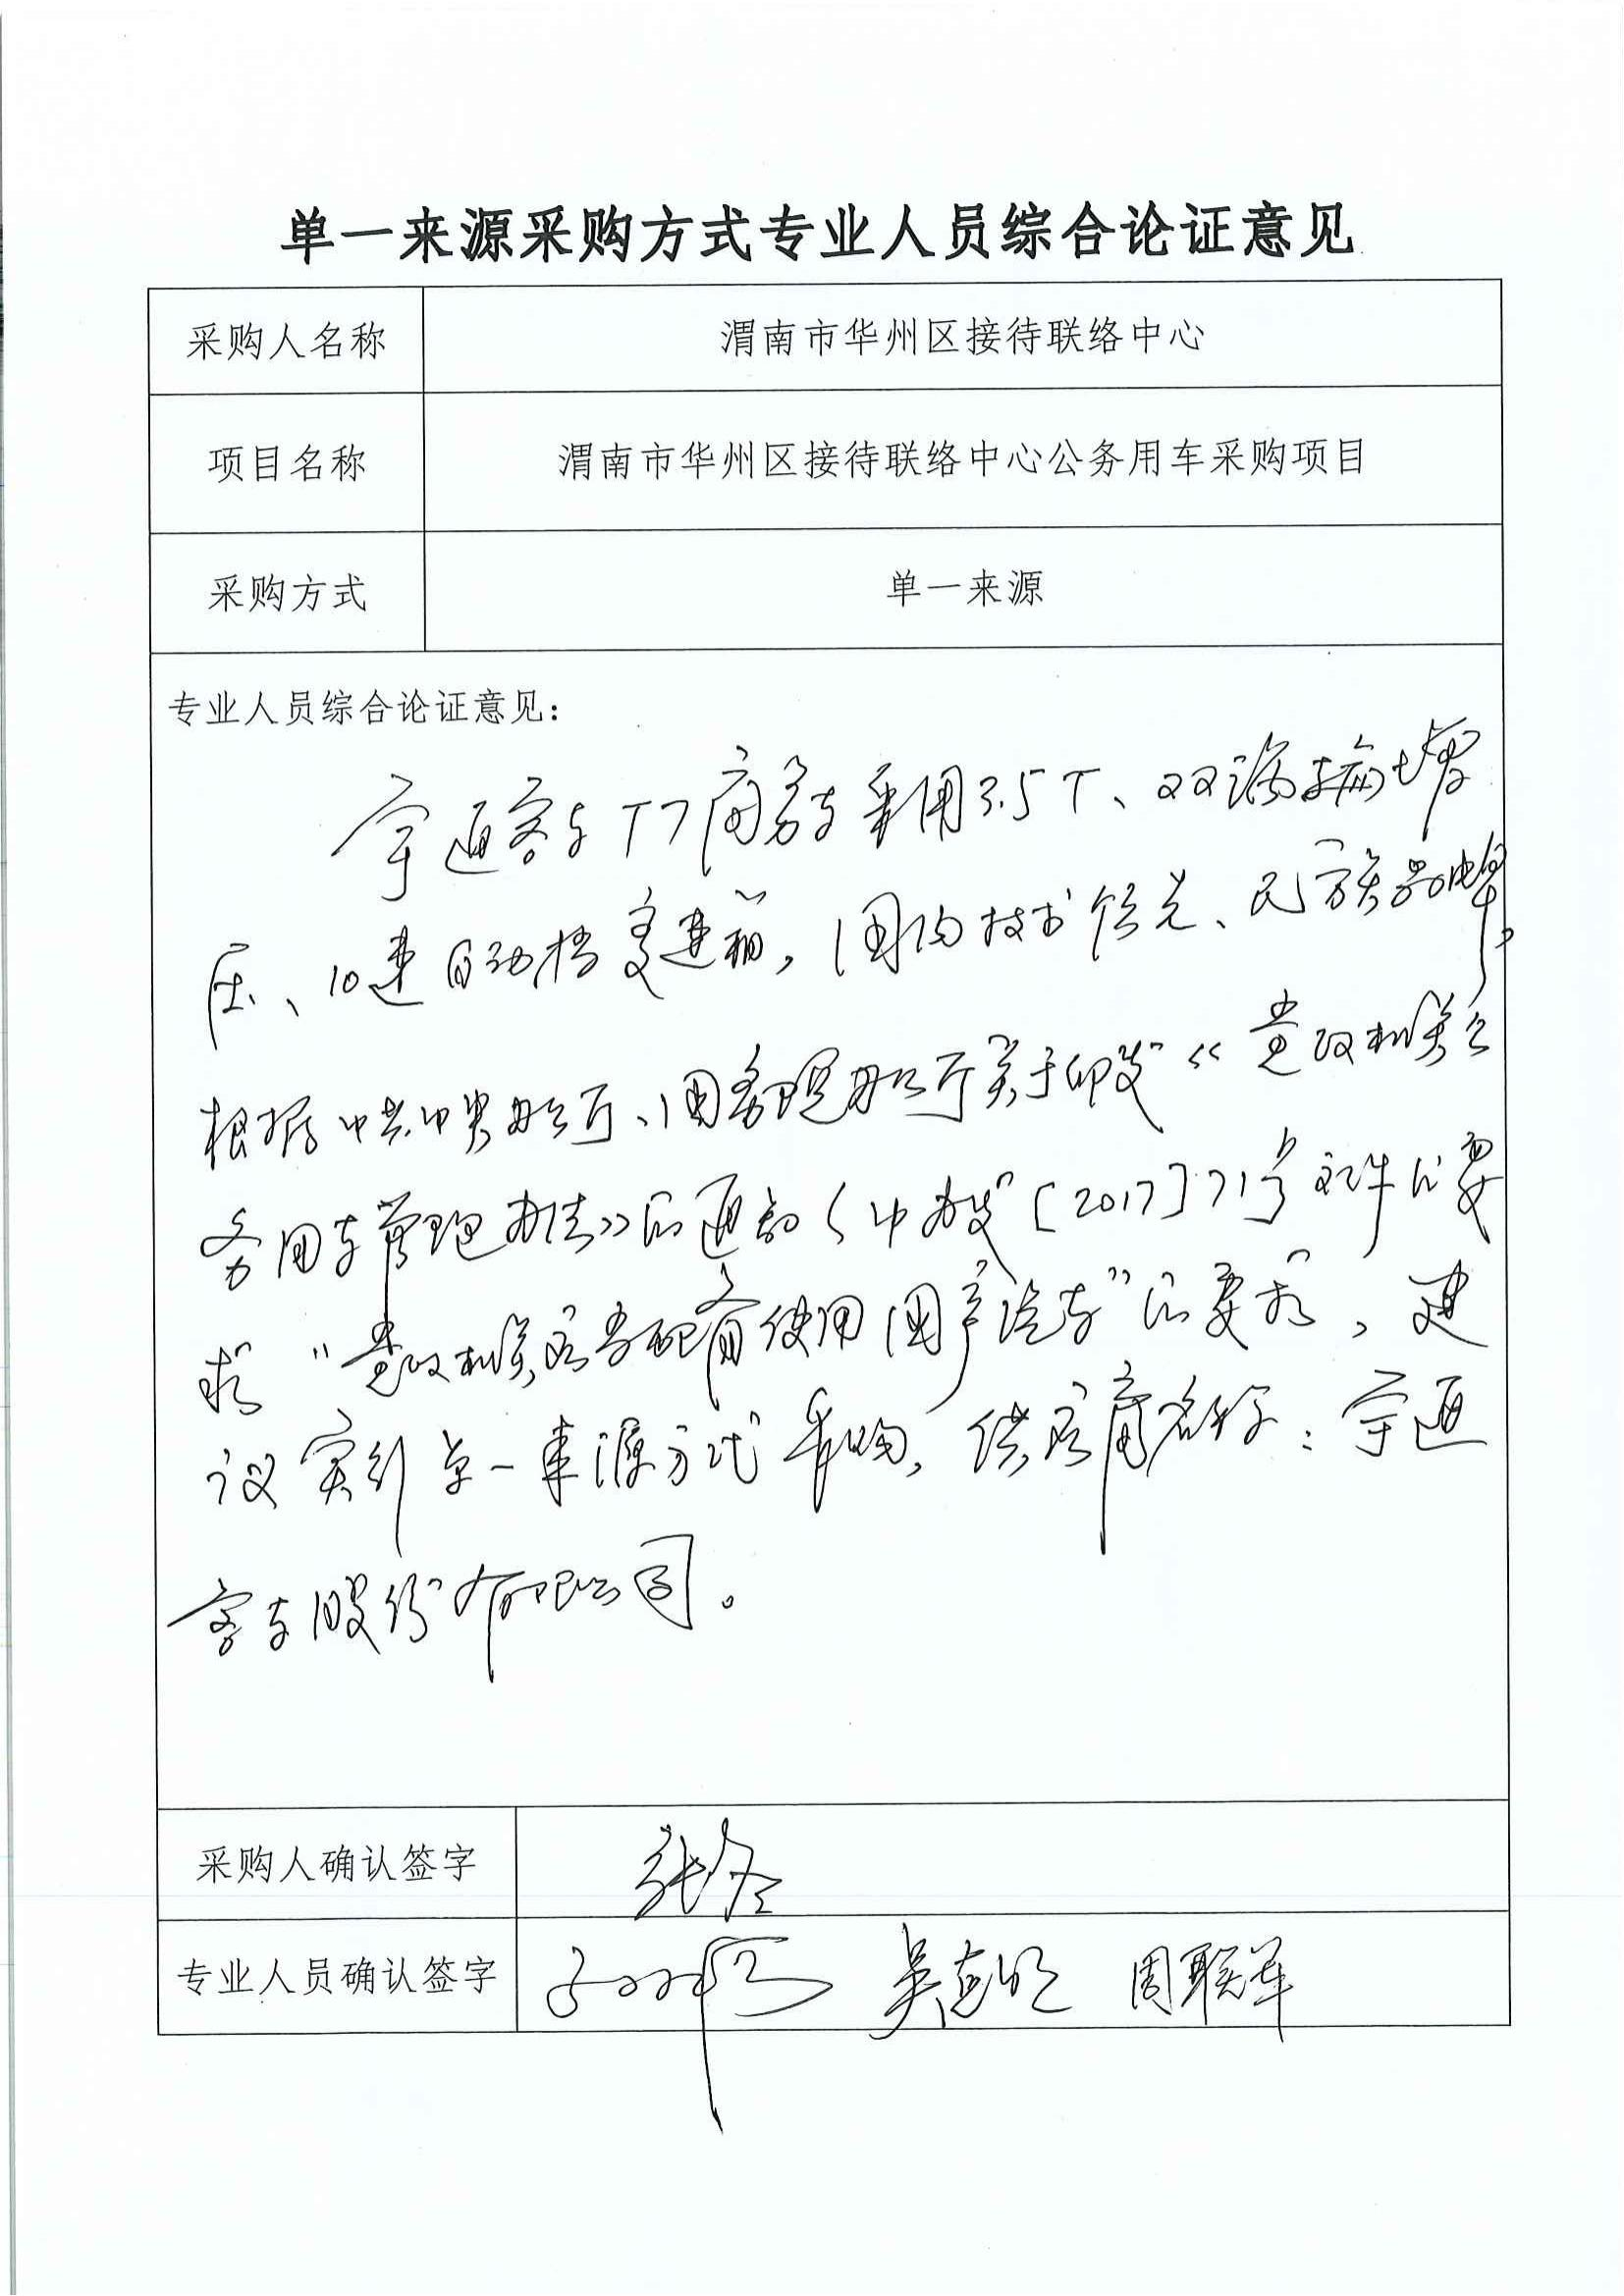 单一来源采购方式专业人员综合论证意见
采购人名称 渭南市华州区接待联络中心
项目名称 渭南市华州区接待联络中心公务用车采购项目
采购方式 单一来源
专业人员综合论证意见:
宇通客车T7商务车采用3.5T、双涡轮增
压、10速自动档变速箱,国内技术领先、民族品牌,
根据中共中央办公厅、国务院办公厅关于印发《党政机关公
务用车管理办法》的通知(中办发[2017]71号文件的要
求“党政机关应当配备使用国产汽车”的要求,建
议实行单一来源方式采购,供应商名称:宇通
客车股份有限公司。
采购人确认签字 张
专业人员确认签字 吴 周联军